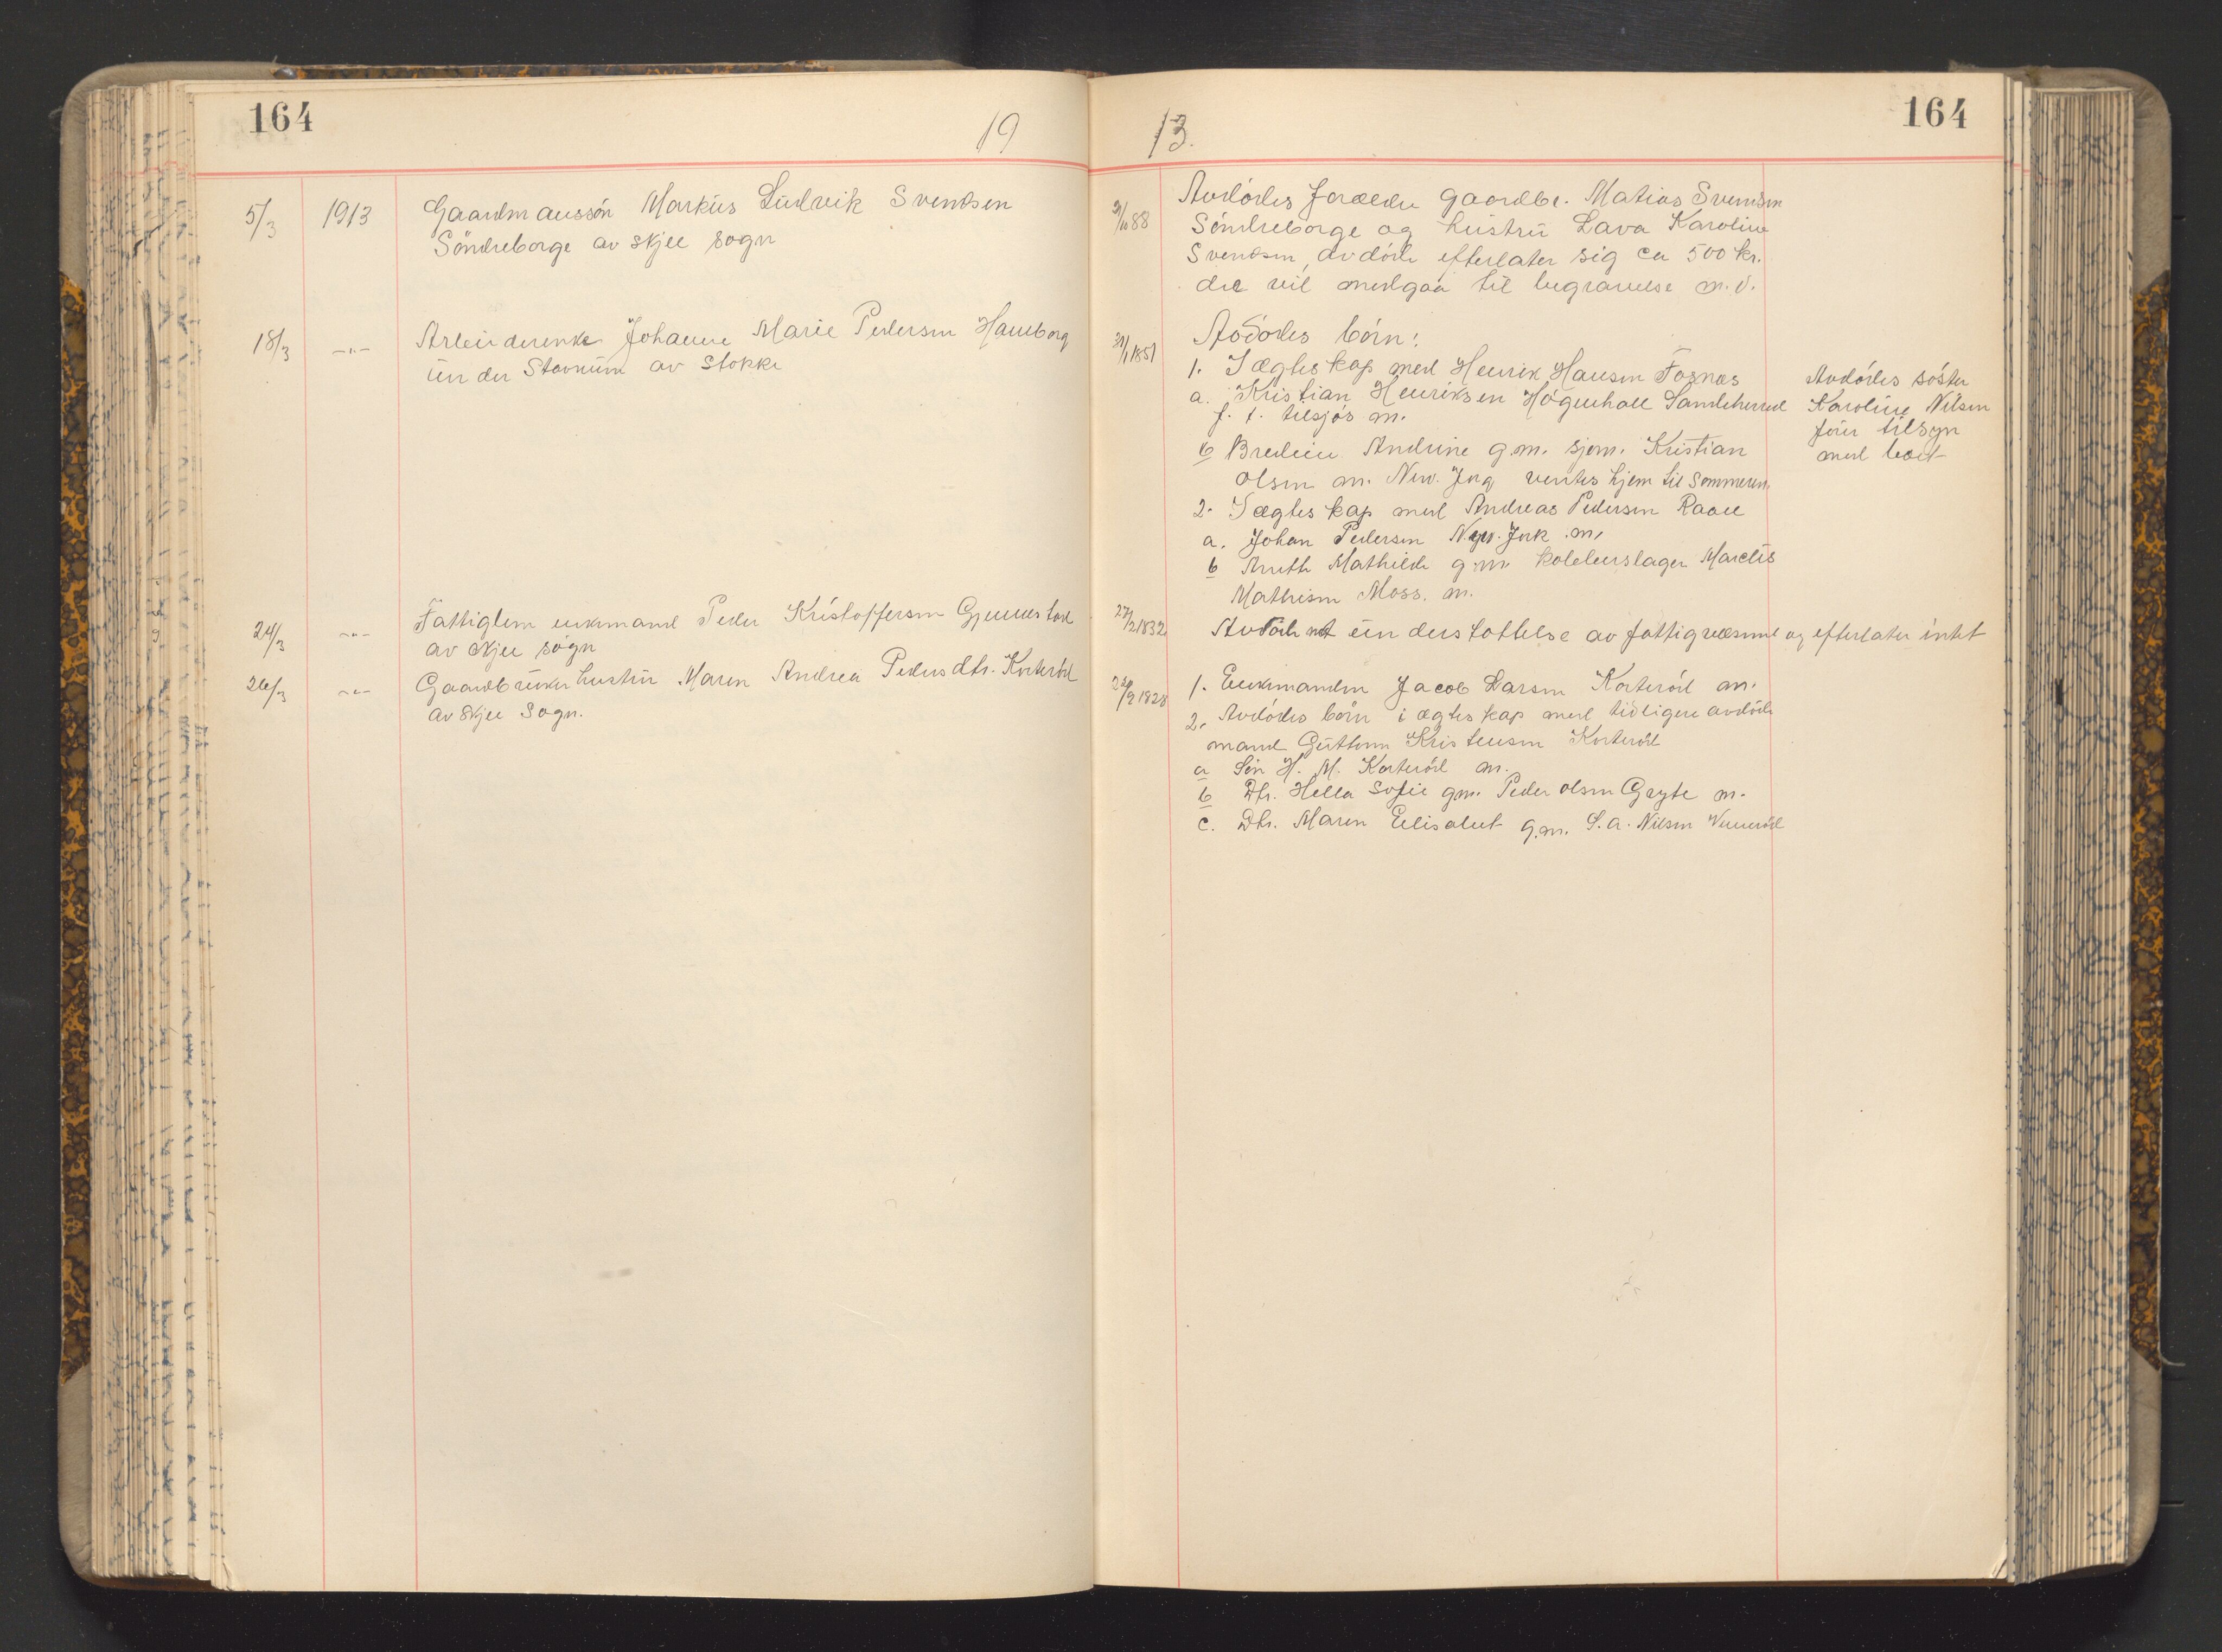 164
19
5/3 1913 Gaardmanssön Markus Ludvik Svendsen
Söndreborge av skjee sogn
18/3 -"- Arbeiderenke Johanne Marie Pedersen Hauborg
under Stavnum av Stokke
24/3 -"- Fattiglem enkemand Peder Kristoffersen Gjennestad
av skjee sogn
26/3 -"- Gaardbruker hustru Maren Andrea Pedersdtr. Korteröd
av Skjee Sogn.
13.
164
88 Avdödes forældre gaardbr. Matias Svendsen
Söndreborge og hustru Lava Karoline
Svendsen, avdöde efterlater sig ca 500 kr.
die vil medgaa til begravelse m.v.
31/1 1851 Avdödes börn:
1. I ægteskap med Henrik Hansen Fosnæs
a. Kristian Henriksen Högenhall Sandeherred
f. t. tilsjös m.
b Bredine Andrine g.m. sjem. Kristian
Olsen m. New. Jorg ventes hjem til Sommeren
2. I ægteskap med Andreas Pedersen Raael
a. Johan Pedersen New. Jork m.
b Anette Mathilde g.m. kobberslager Marelis
Mathisen Moss. m.
Avdödes söster
Karoline Nilsen
förer tilsyn
med boet
27/2 1832 Avdöde nöt understöttelse av fattigvæsenet og efterlater intet
22/9 1828 1. Enkemanden Jacob Larsen Korteröd m.
2. Avdödes börn i ægteskap med tidligere avdöde
mand Guttorm Kristensen Korteröd
a Sön H. M. Korteröd m.
b Dtr. Hella Sofie gm. Peder Olsen Gryte m.
c. Dtr. Maren Elisabet g.m. S. A. Nilsen